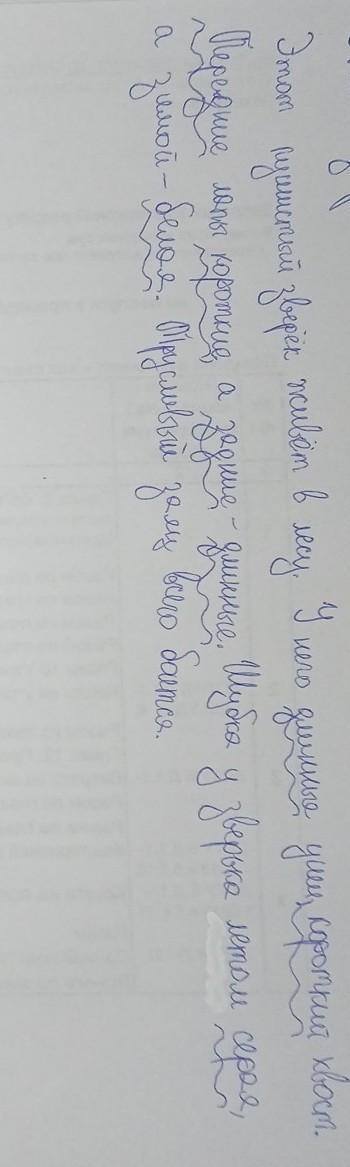 Этот пушистый зверёк живёт в лесу. У него длинные уши, короткий хвост.
Передние лапы короткие, а задние - длинные. Шубка у зверька летом серая,
а зимой - белая. Трусливый заяц всего боится.